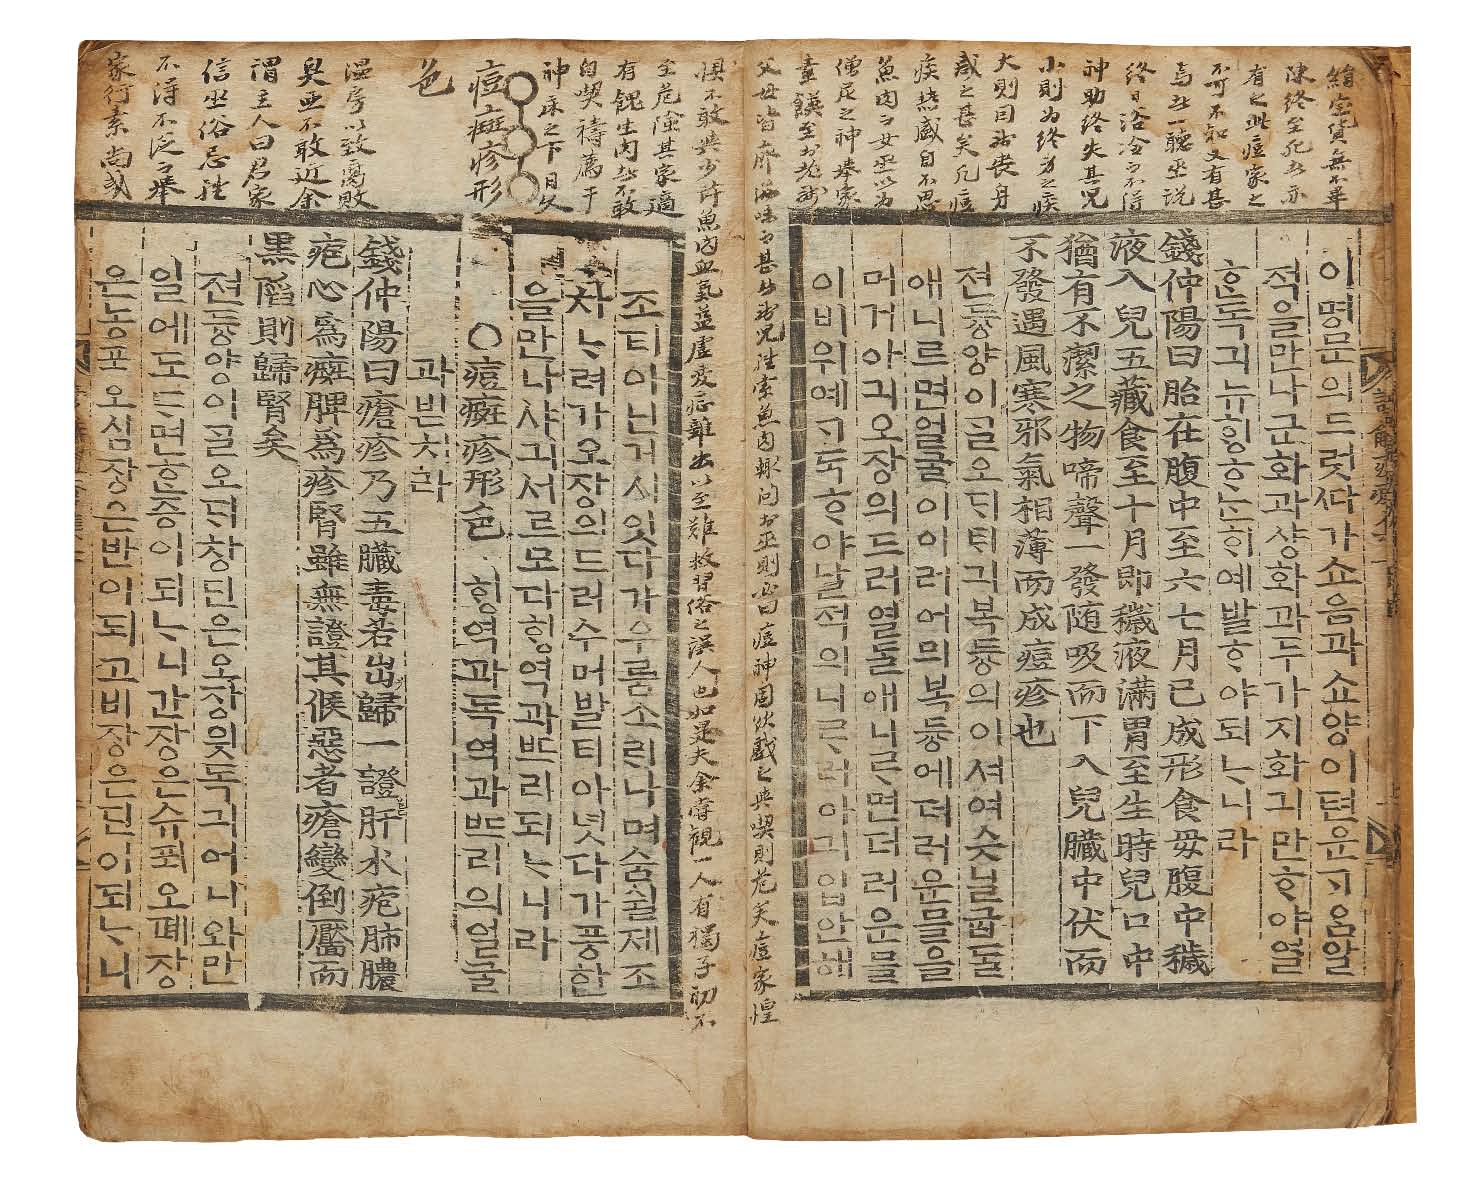 陳終至死亡亦
有之此痘家之
不可不知又有甚
焉者一聽巫說
終日浴冷而不得
神助終失其兒
小則为終身之疾
大則目喪身
惑之甚矣凡痘
疾熱盛自不思
魚肉而女巫以为
僧尼之神擧家
父母皆齋滋味而甚兒性索魚肉輒問於巫則必曰痘神固欲戱之與喫則危矣痘家惶
이명문의드럿ᄯᅡ가쇼음과쇼양이운긔알
적을만나군화과샹화과두가지화긔만ᄒᆞ야열
ᄒᆞᆫ독긔뉴ᄒᆡᆼᄒᆞᄂᆞᆫᄒᆡ예발ᄒᆞ야되ᄂᆞ니라
錢仲陽曰胎在腹中至六七月已成形食母腹中穢
液入兒五藏食至十月即穢液滿胃至生時兒口中
猶有不潔之物啼聲一發隨吸而下入兒臟中伏而
不發遇風寒邪氣相薄而成痘疹也
전듕양이ᄀᆞᆯ오ᄃᆡᄐᆡ긔복듕의이셔여슷닐굽ᄃᆞᆯ
애니르면얼굴이이러어믜복듕에더러운믈을
머거아긔오장의드러열ᄃᆞᆯ애니ᄅᆞ면더러운믈
이비위예ᄀᆞ독ᄒᆞ야날적의니ᄅᆞ러아긔입안해
懼不敢與少許魚肉血氣益虛疫忌雖出以至難救習俗之誤人也如是夫余嘗觀一人有獨子初不
至危險其家適
有餽生肉者不敢
自喫禱薦于
神床之下日久
痘癍疹形
色
溫房以致臭敗
臭亞不敢近余
謂主人曰君家
信巫俗忌
不得不泛
家行素尚或
조티아닌거시잇다가우름소ᄅᆡ나며숨쉴제조
차ᄂᆞ려가오장의드러수머발티아녓다가풍한
을만나샤긔서르모다ᄒᆡᆼ역과ᄠᅳ리되ᄂᆞ니라
○痘癍疹形色 ᄒᆡᆼ역과독역과ᄠᅳ리의얼굴
과빗치라
錢仲陽曰瘡疹乃五臟毒若出歸一證肝水疱肺膿
疱心爲癍脾爲疹腎雖無證其候惡者瘡變倒黶而
黑陷則歸腎矣
전듕양이ᄀᆞᆯ오ᄃᆡ창딘은오장읫독긔어니와만
일에도ᄃᆞ면ᄒᆞᆫ증이되ᄂᆞ니간장은슈푀오폐장
은농포오심장은반이되고비장은딘이되ᄂᆞ니